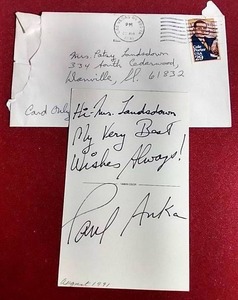 PM
USA
29
Mrs. Patsy Landsdown
334 South Cedarwood,
Danville, Il. 61832
Card Only
Hi-Mrs. Landsdown
My Very Best
Wishes Always!
Paul Anka
August 1991